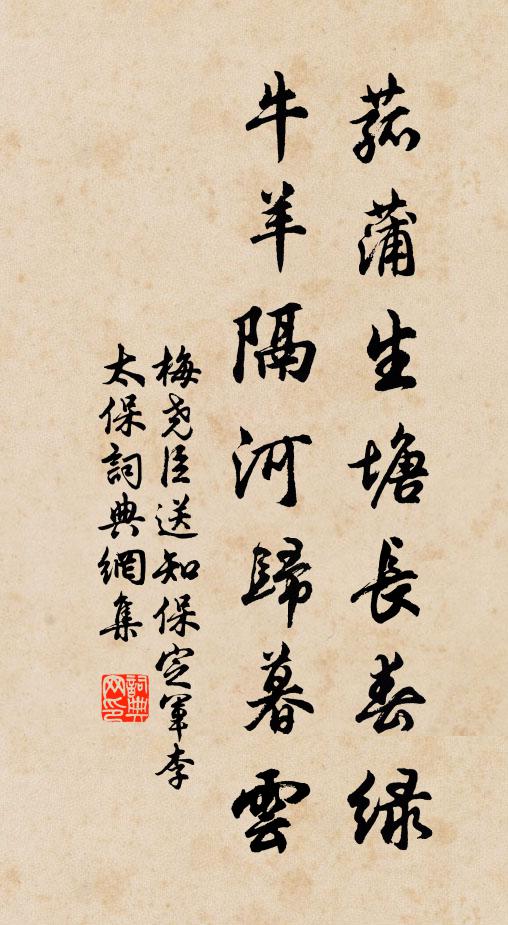 菰蒲生塘長春緑
牛羊隔河歸暮雲
梅堯臣送知保定軍李
太保詞典網集
詞典網印